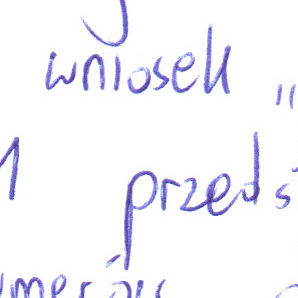 wniosek „
1 przeds
umerów